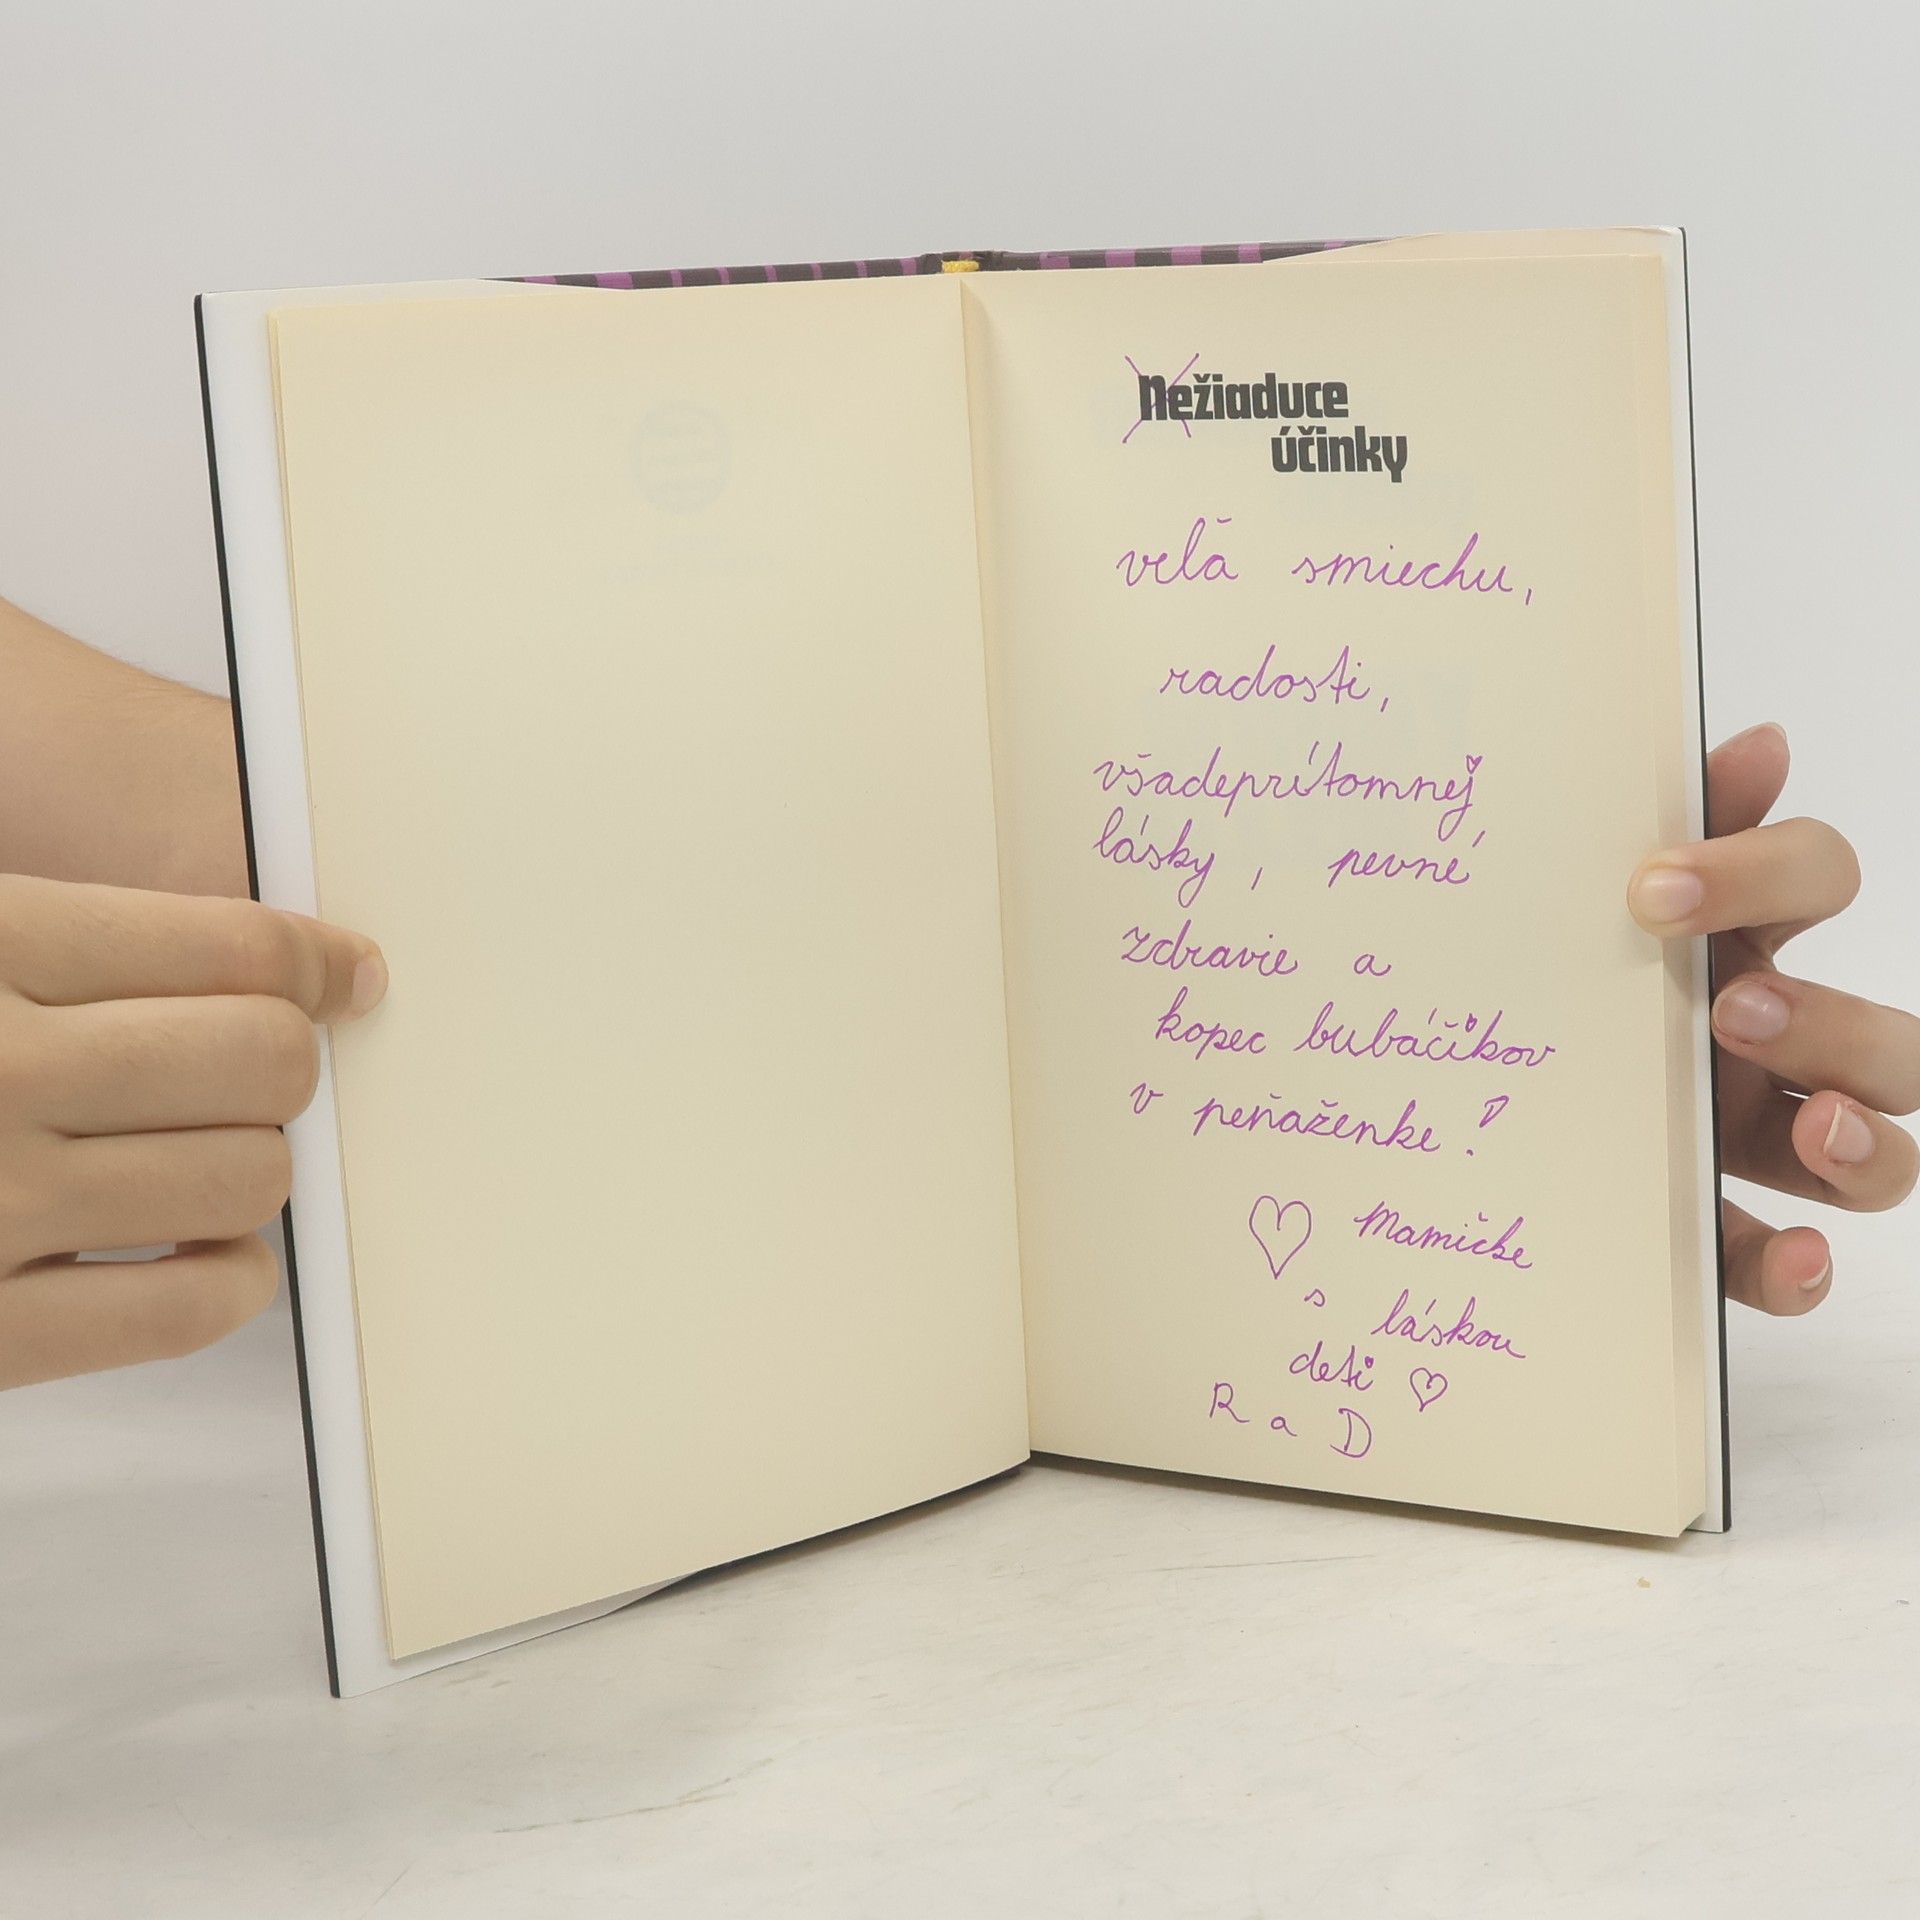 Nežiaduce
účinky
veľa smiechu,
radosti,
všadeprítomnej
lásky, pevné
zdravie a
kopec bubáčikov
v peňaženke!
♡ Mamičke
s láskou
deti ♡
R a D